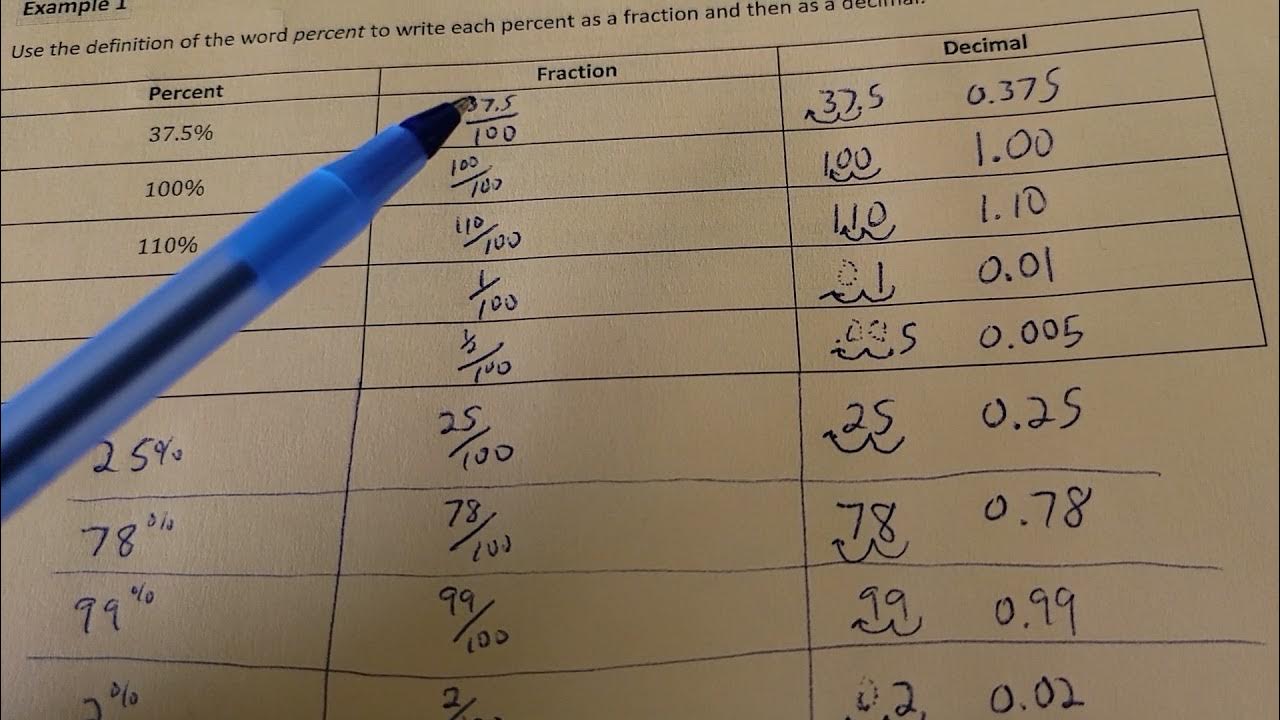 Example 1
Use the definition of the word percent to write each percent as a fraction and then as a decimal.
Percent Fraction Decimal
37.5% 37.5/100 37.5 0.375
100% 100/100 100 1.00
110% 110/100 110 1.10
1/100 01 0.01
/100 .005 0.005
25% 25/100 25 0.25
78% 78/100 78 0.78
99% 99/100 99 0.99
2% 2/ 02 0.02